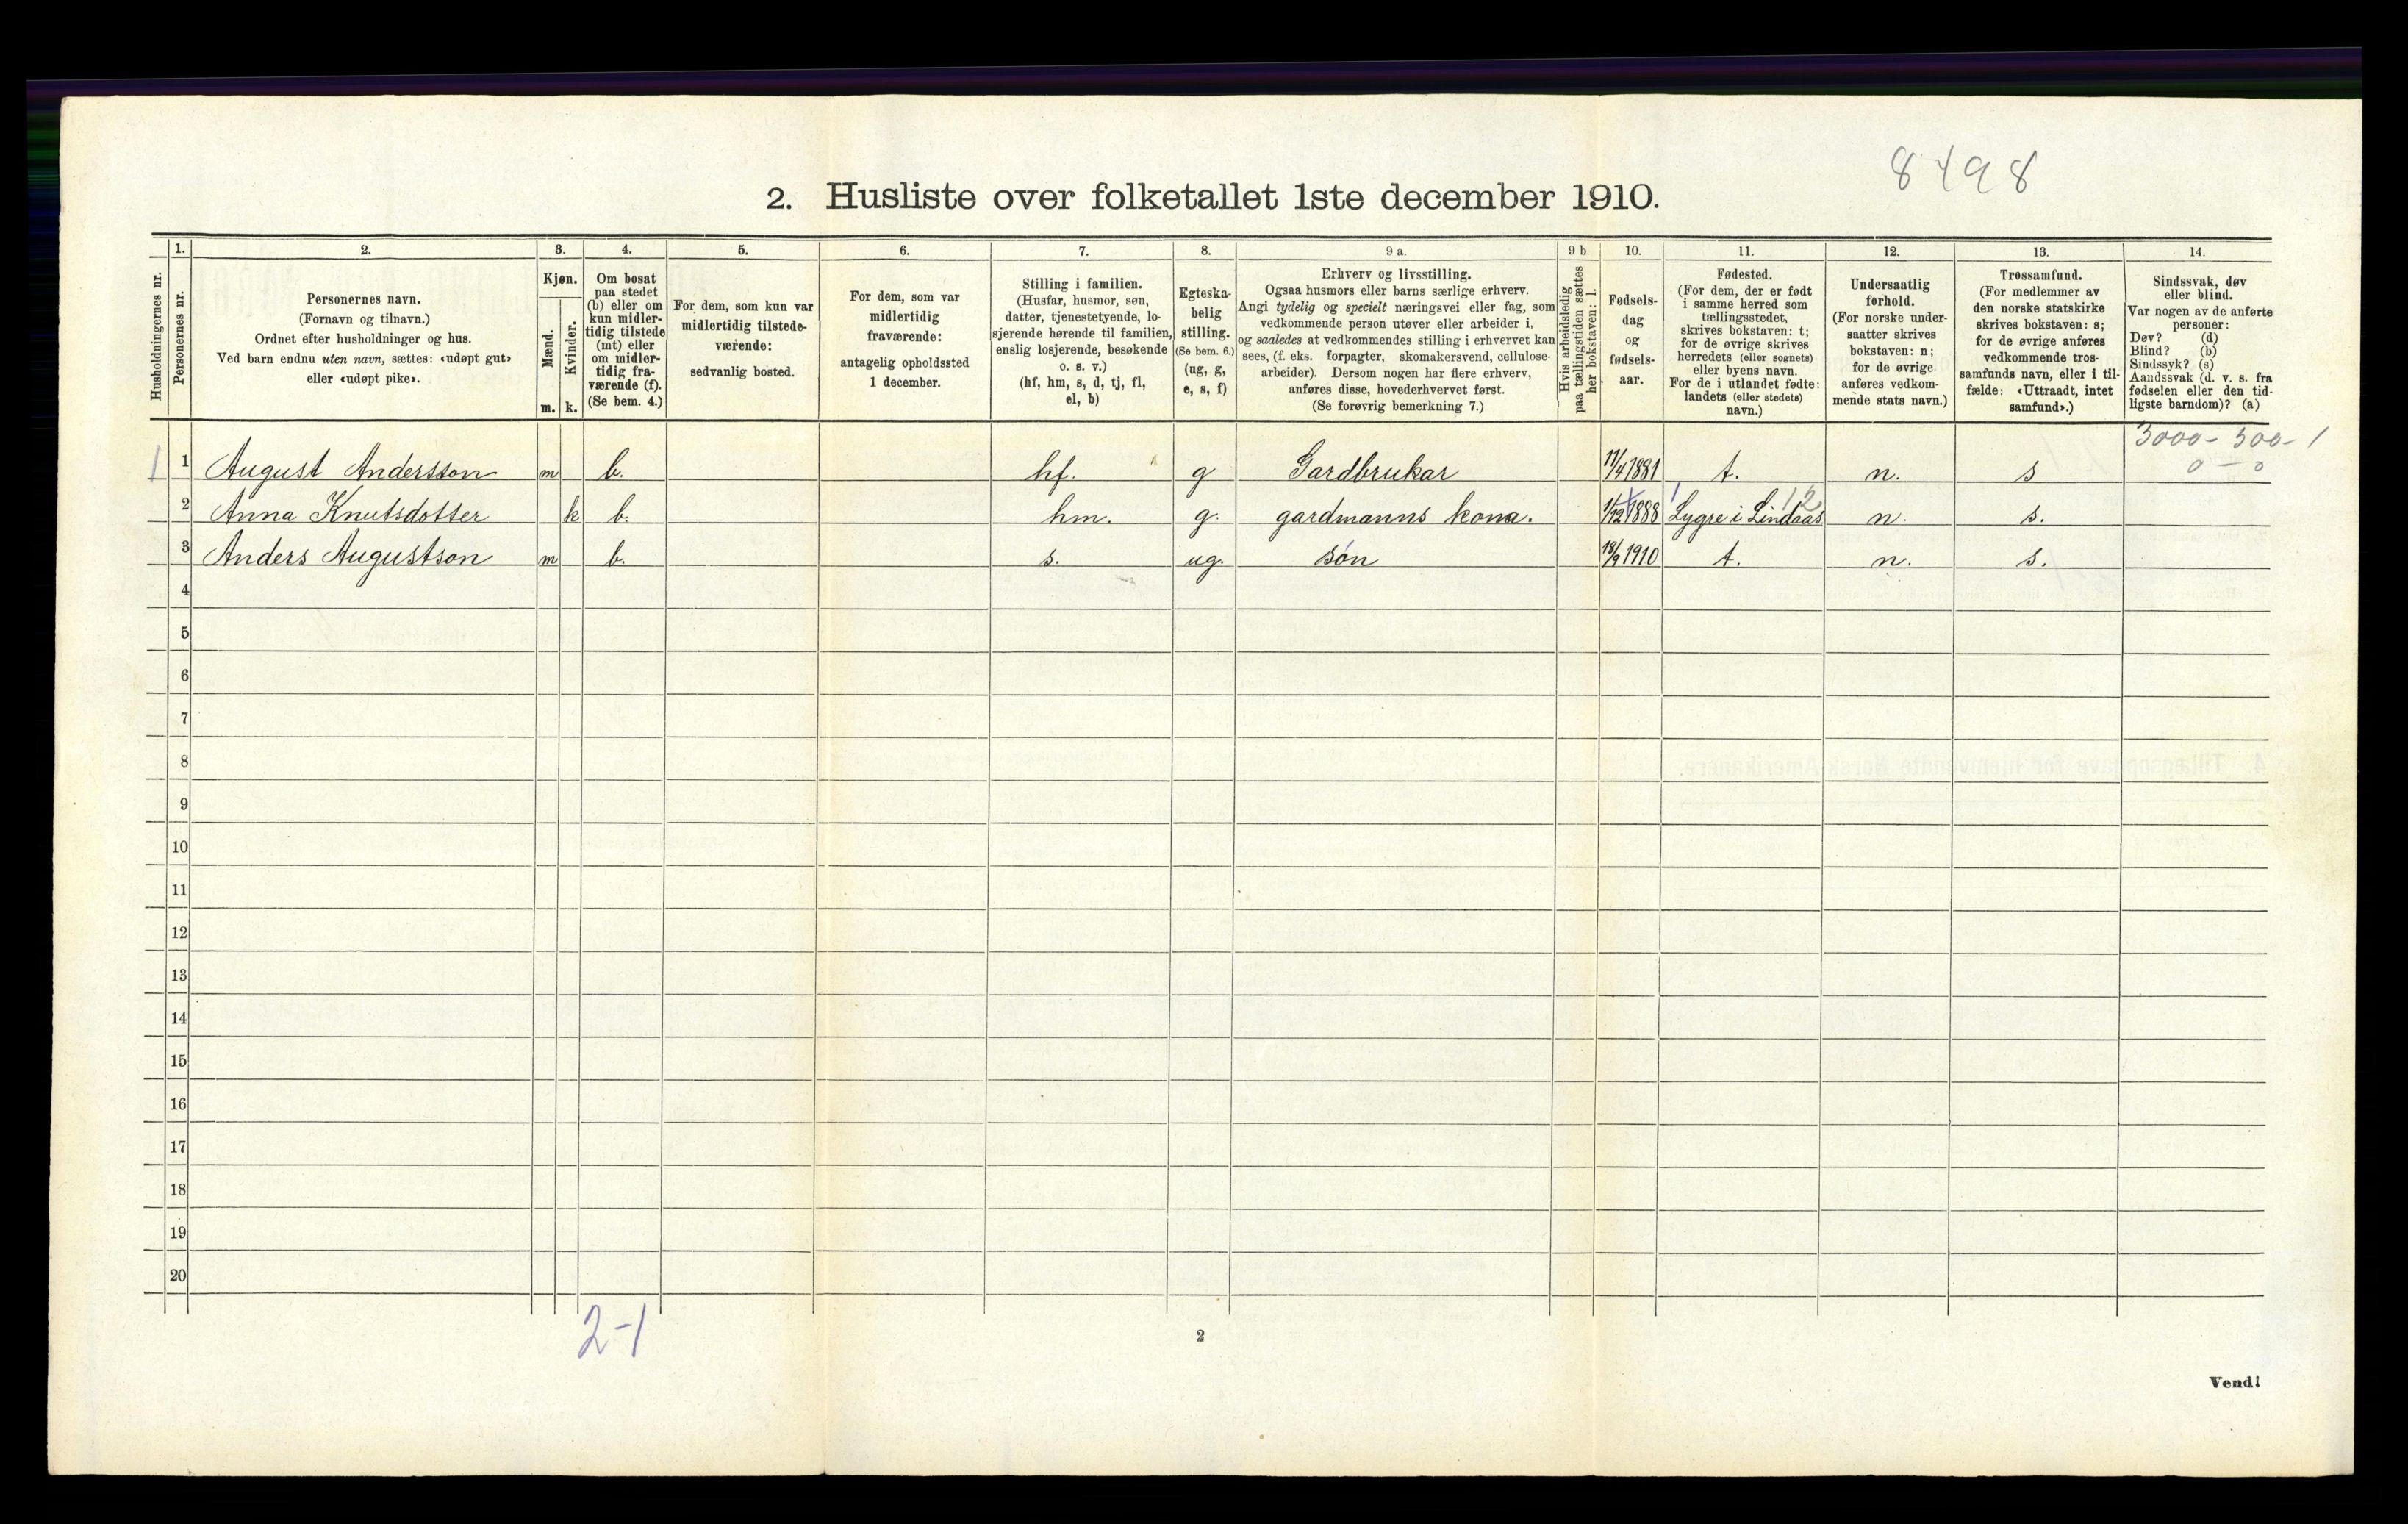 8498
2. Husliste over folketallet 1ste december 1910.
Husholdningernes nr.
1.
Personernes nr.
2.
Personernes navn.
(Fornavn og tilnavn.)
Ordnet efter husholdninger og hus.
Ved barn endnu uten navn, sættes: «udøpt gut»
eller «udøpt pike».
3.
Kjøn.
Mænd.
Kvinder.
m. k.
4.
Om bosat
paa stedet
(b) eller om
kun midler-
tidig tilstede
(mt) eller
om midler-
tidig fra-
værende (f).
(Se bem. 4.)
5.
For dem, som kun var
midlertidig tilstede-
værende:
sedvanlig bosted.
6.
For dem, som var
midlertidig
fraværende:
antagelig opholdssted
1 december.
7.
Stilling i familien.
(Husfar, husmor, søn,
datter, tjenestetyende, lo-
sjerende hørende til familien,
enslig losjerende, besøkende
o. s. v.)
(hf, hm, s, d, tj, fl,
el, b)
8.
Egteska-
belig
stilling.
(Se bem. 6.)
(ug, g,
e, s, f)
9 a.
Erhverv og livsstilling.
Ogsaa husmors eller barns særlige erhverv.
Angi tydelig og specielt næringsvei eller fag, som
vedkommende person utøver eller arbeider i,
og saaledes at vedkommendes stilling i erhvervet kan
sees, (f. eks. forpagter, skomakersvend, cellulose-
arbeider). Dersom nogen har flere erhverv,
anføres disse, hovederhvervet først.
(Se forøvrig bemerkning 7.)
9 b
Hvis arbeidsledig
paa tællingstiden sættes
her bokstaven: l.
10.
Fødsels-
dag
og
fødsels-
aar.
11.
Fødested.
(For dem, der er født
i samme herred som
tællingsstedet,
skrives bokstaven: t;
for de øvrige skrives
herredets (eller sognets)
eller byens navn.
For de i utlandet fødte:
landets (eller stedets)
navn.)
12.
Undersaatlig
forhold.
(For norske under-
saatter skrives
bokstaven: n;
for de øvrige
anføres vedkom-
mende stats navn.)
13.
Trossamfund.
(For medlemmer av
den norske statskirke
skrives bokstaven: s;
for de øvrige anføres
vedkommende tros-
samfunds navn, eller i til-
fælde: «Uttraadt, intet
samfund».)
14.
Sindssvak, døv
eller blind.
Var nogen av de anførte
personer:
Døv? (d)
Blind? (b)
Sindssyk? (s)
Aandssvak (d. v. s. fra
fødselen eller den tid-
ligste barndom)? (a)
3000 - 500 - 1
0 - 0
1 1 August Andersson m b. hf. g Gardbrukar 11/4 1881 t. n. s
2 Anna Knutsdotter k b. hm. g. gardmanns kona. 1/12 1888 Lygre i Lindaas n. s.
12
3 Anders Augustson m b. s. ug. són 18/9 1910 t. n. s.
4
5
6
7
8
9
10
11
12
13
14
15
16
17
18
19
20
2-1
2
Vend!